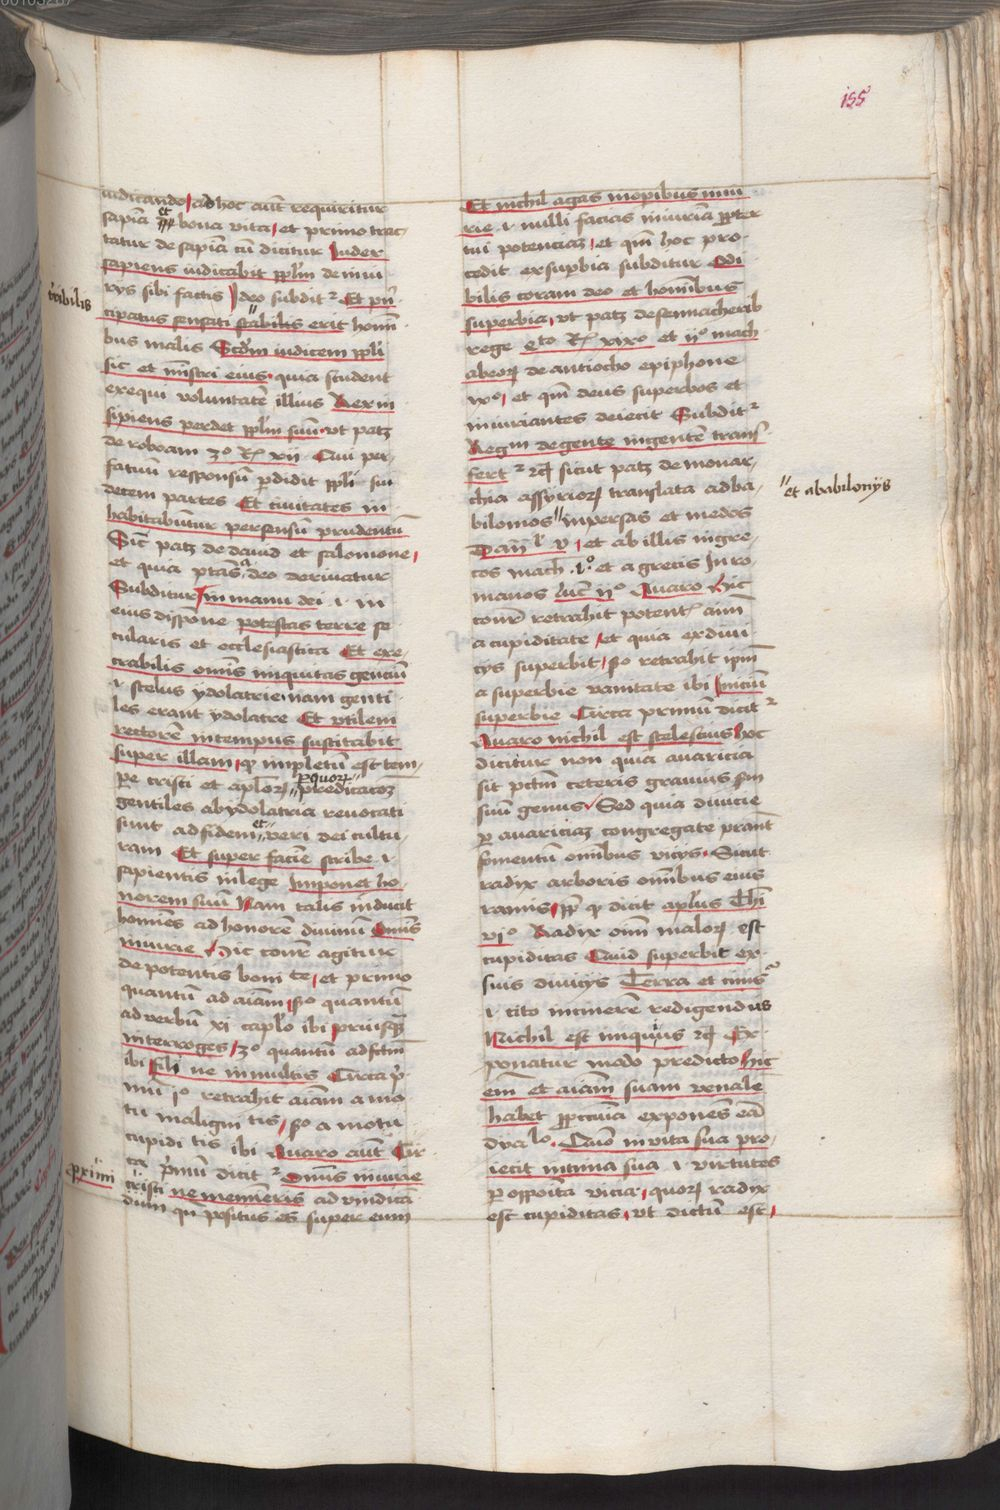 155
iudicando ad hoc aūt requiritur
sapīa et bona vita et primo trac-
tatur de sapīa cū dicitur Iudex
sapiens iudicabit ppl̄m de iniu
rijs sibi factis ideo subditr Et prī
cipatus sensati stabilis erit homī
tͥbilis
bus malis Scdm iudicem ppl̄i
sic et mīstri eius quia student
exequi voluntatē illius Rex in
sipiens perdet ppl̄m suū vt patꝫ
de roboam 3º Rͫ xii Qui per
fatuū responsū ꝑdidit ppl̄i sui
decem partes Et ciuitates in
habitabūtur per sensū prudentū
Sic patꝫ de dauid et salomone
et quia ptās a deo deriuatur
Subditur in manu dei i in
eius dispōne potestas terre se
cularis et ecclesiastica Et exe
crabilis omīs iniquitas genciū
i scelus ydolatrie nam genti
les erant ydolatre Et vtilem
rectorē in tempus suscitabit
super illam qͦ impletū est tem
pe cristi et apl̄oꝝ ꝑ quoꝝ predicacōꝫ
gentiles ab ydolatria reuocati
sunt ad fidem et veri dei cultu
ram Et super faciē scribe i
sapientis in lege Imponet ho
norem suū Nam talis inducit
homīes ad honorē diuinū Omīs
iniurie Hic cōnr̄ agitur
de potentis boni te et primo
quantū ad aīam scdo quantū
ad verbū xi caplo ibi priusqꝫ
interroges 3º quantū ad fctm̄
ibi fili ne in multis Circa p̄
mū iº retrahit aīam a mo
tu maligni tis scdo a motu
cupidi tis ibi Auaro aūt Cir
ca p̄mū dicit r Omīs iniurie
ꝓximi
cristi ne memīeris ad vindicā
dum qn̄ positus es super eum
Et nichil agas in opibus iniu
rie i nulli facias iniuriā ꝓpter
tui potenciaꝫ et qm̄ hoc pro
cedit ex supbia subditur Odi
bilis coram deo et homībus
superbia vt patꝫ de sennacherib
rege 4to Rͫ xixº et iiº mach
abeoꝝ de antiocho epiphone
ixº et qm̄ deus superbos et
iniuriantes deiecit Subditr
Regnū de gente in gentē trans
fert r 2ꝗ sicut patꝫ de monar
chia assyrioꝝ translata ad ba
bilonios in persas et medos
et a babilonijs
Dan̄ v et ab illis in gre
cos mach 1º et a grecis In ro
manos luc iiº Auaro Hic
cōnr̄ retrahit potentꝭ aīm
a cupiditate et quia ex diui
cijs superbit scdo retrahit ipm̄
a superbie vanitate ibi Iniciū
superbie Circa primū dicitr
Auaro nichil est scelestius hoc
dicitur non quia auaricia
sit pctm̄ ceteris grauius scdm
suū genus Sed quia diuicie
ꝑ auariciaꝫ congregate prānt
fomentū omībus vicijs Sicut
radix arboris omībus eius
ramis ꝓp qͦ dicit aplus Thī
viº Radix omī maloꝝ est
cupiditas Quid superbit ex
suis diuicijs Terra et cinis
i cito in cinerē redigendus
Nichil est iniquius 2ꝗ Ex
ponatur modo predicto hic
em̄ et aīam suam venalē
habet ꝓ pecuīa exponēs eā
dyalo Qm̄ in vita sua pro
iecit intima sua i virtutes
ꝑ opposita vicia quoꝝ radix
est cupiditas vt dictū est